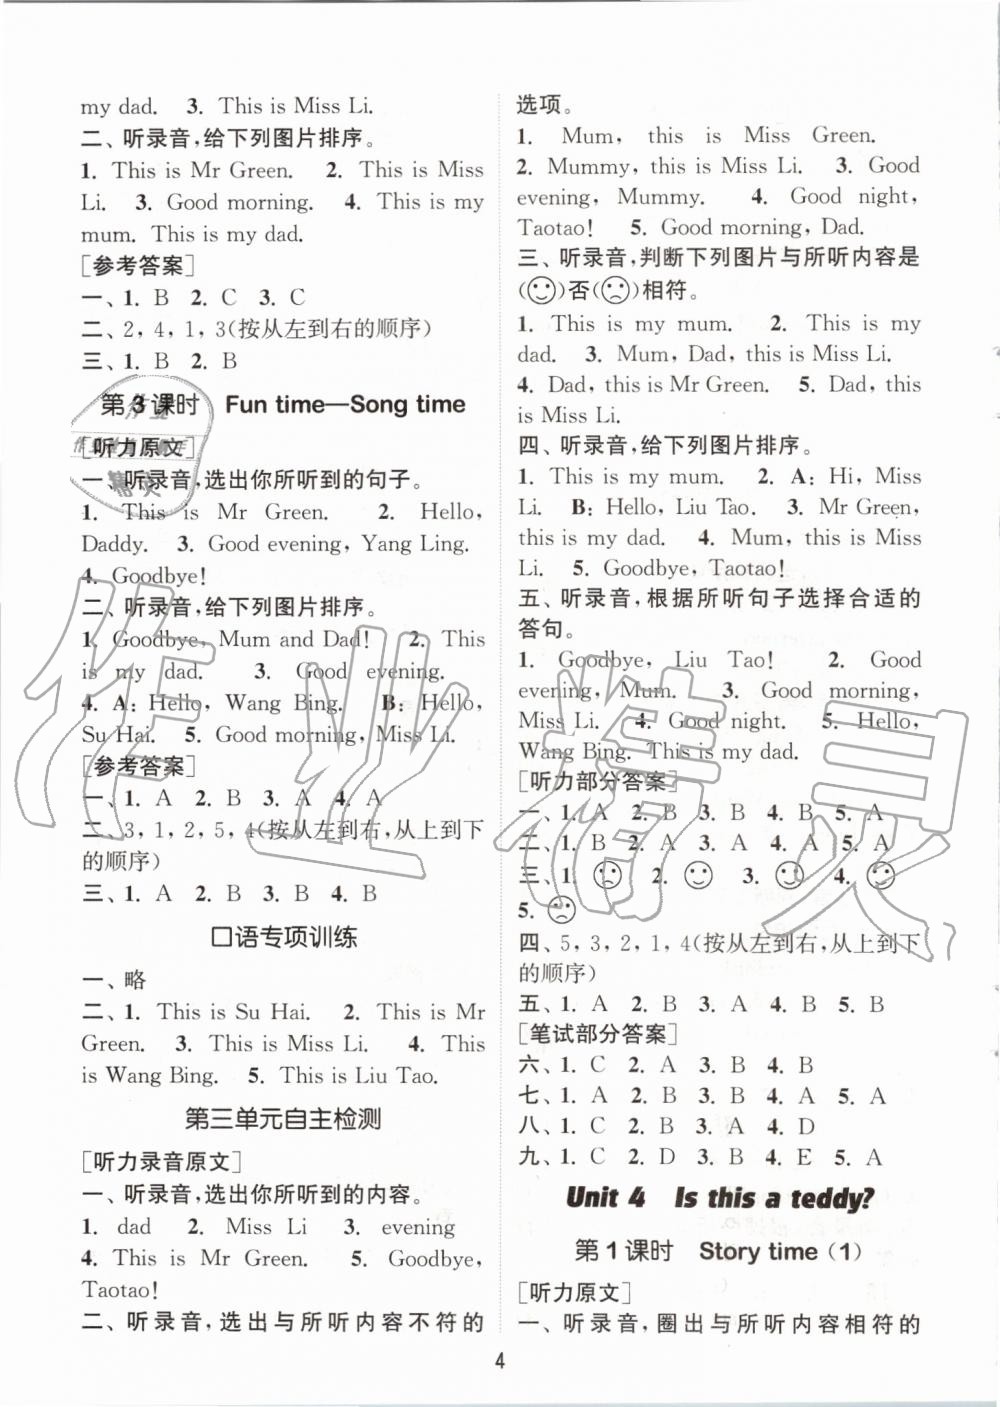 my dad. 3. This is Miss Li.
二、听录音,给下列图片排序。
1. This is Mr Green. 2. This is Miss
Li. 3. Good morning. 4. This is my
mum. This is my dad.
[参考答案]
一、1. B 2. C 3. C
二、2, 4, 1, 3(按从左到右的顺序)
三、1. B 2. B
第 3 课时 Fun time—Song time
[听力原文]
一、听录音,选出你所听到的句子。
1. This is Mr Green. 2. Hello,
Daddy. 3. Good evening, Yang Ling.
4. Goodbye!
二、听录音,给下列图片排序。
1. Goodbye, Mum and Dad! 2. This
is my dad. 3. Good evening.
4. A: Hello, Wang Bing. B: Hello,
Su Hai. 5. Good morning, Miss Li.
[参考答案]
一、1. A 2. B 3. A 4. A
二、3, 1, 2, 5, 4(按从左到右,从上到下
的顺序)
三、1. A 2. B 3. B 4. B
口语专项训练
一、略
二、1. This is Su Hai. 2. This is Mr
Green. 3. This is Miss Li. 4. This
is Wang Bing. 5. This is Liu Tao.
第三单元自主检测
[听力录音原文]
一、听录音,选出你所听到的内容。
1. dad 2. Miss Li 3. evening
4. This is Mr Green. 5. Goodbye,
Taotao!
二、听录音,选出与所听内容不符的
选项。
1. Mum, this is Miss Green.
2. Mummy, this is Miss Li. 3. Good
evening, Mummy. 4. Good night,
Taotao! 5. Good morning, Dad.
三、听录音,判断下列图片与所听内容是
(☺)否(☹)相符。
1. This is my mum. 2. This is my
dad. 3. Mum, Dad, this is Miss Li.
4. Dad, this is Mr Green. 5. Dad, this
is Miss Li.
四、听录音,给下列图片排序。
1. This is my mum. 2. A: Hi, Miss
Li. B: Hello, Liu Tao. 3. Mr Green,
this is my dad. 4. Mum, this is Miss
Li. 5. Goodbye, Taotao!
五、听录音,根据所听句子选择合适的
答句。
1. Goodbye, Liu Tao! 2. Good
evening, Mum. 3. Good morning,
Miss Li. 4. Good night. 5. Hello,
Wang Bing. This is my dad.
[听力部分答案]
一、1. A 2. B 3. B 4. B 5. A
二、1. B 2. A 3. A 4. A 5. A
三、1. ☹ 2. ☺ 3. ☺ 4. ☺
5. ☹
四、5, 3, 2, 1, 4(按从左到右,从上到下
的顺序)
五、1. A 2. B 3. A 4. B 5. B
[笔试部分答案]
六、1. C 2. A 3. B 4. B
七、1. A 2. B 3. B 4. A 5. A
八、1. C 2. B 3. A 4. D
九、1. C 2. D 3. B 4. E 5. A
Unit 4 Is this a teddy?
第 1 课时 Story time (1)
[听力原文]
一、听录音,圈出与所听内容相符的
4
作业精灵